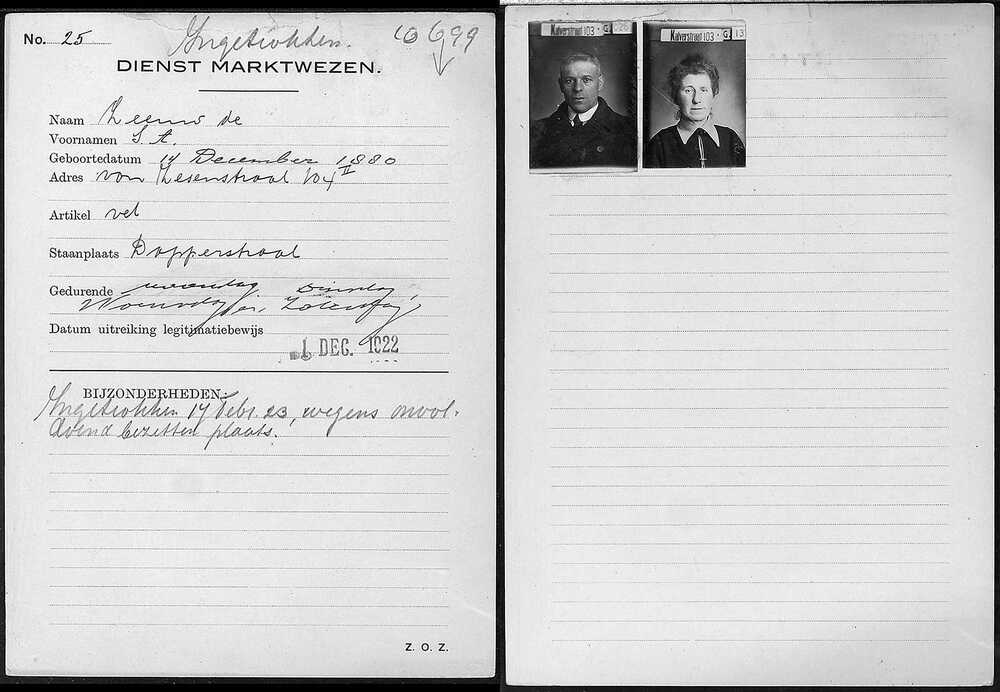 No. 25
Ingetrokken.
10699
DIENST MARKTWEZEN.
Naam Zeeuw de
Voornamen S. A.
Geboortedatum 14 December 1880
Adres von Zesenstraat 104 II
Artikel vet
Staanplaats Dapperstraat
Gedurende maandag Dinsdag,
Woensdag en Zaterdag
Datum uitreiking legitimatiebewijs
1 DEC. 1922
BIJZONDERHEDEN:
Ingetrokken 14 Febr. 23, wegens onvol-
doend bezetten plaats.
Z. O. Z.
Kalverstraat 103 · G.
Kalverstraat 103 · G. 13